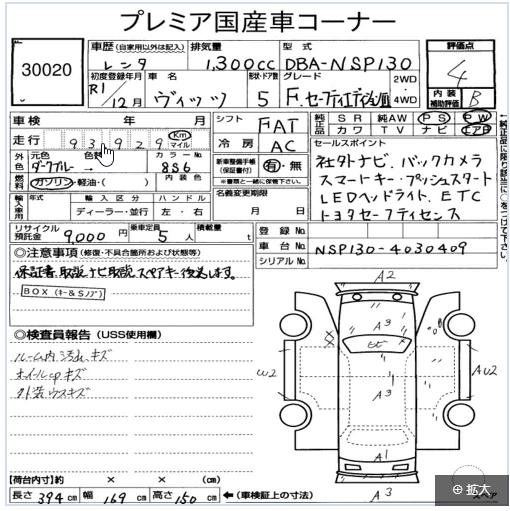 プレミア国産車コーナー
30020
車歴 (自家用以外は記入) 排気量 型式 評価点
レンタ 1,300cc DBA-NSP130 4
初度登録年月 車名 形状・ドア数 グレード 2WD・4WD 内装補助評価 B
R1/12月 ヴィッツ 5 F.セーフティエディションIII
車検 年 月 シフト FAT 純正品 SR 純AW PS PW
走行 93,929 Km マイル 冷房 AC カワ TV ナビ エアB
外色 元色 色替 カラーNo. 新車整備手帳(保証書付) 有・無 セールスポイント
ダークブルー → 8S6 ※書類と一緒に保管下さい。 社外ナビ.バックカメラ
燃料 ガソリン・軽油・( ) 内装色 名義変更期限 スマートキー・プッシュスタート
輸入車用 年式 輸入区分 ハンドル 月 日 LEDヘッドライト.ETC
ディーラー・並行 左・右 トヨタセーフティセンス
リサイクル預託金 9,000円 乗車定員 5人 積載量 t 登録No.
◎注意事項 (修復・不具合箇所および状態等) 車台No. NSP130-4030409
保証書、取説、ナビ取説、スペアキー後送します。 シリアルNo.
BOX(キー&Sノブ)
A2
◎検査員報告 (USS使用欄) A3
ルーム内汚れ キズ
ホイールcap キズ W2 A3 AU2
外装ウスキズ
A1
【荷台内寸】約 × × (cm)
長さ 394 cm 幅 169 cm 高さ 150 cm ←(車検証上の寸法) A3
拡大